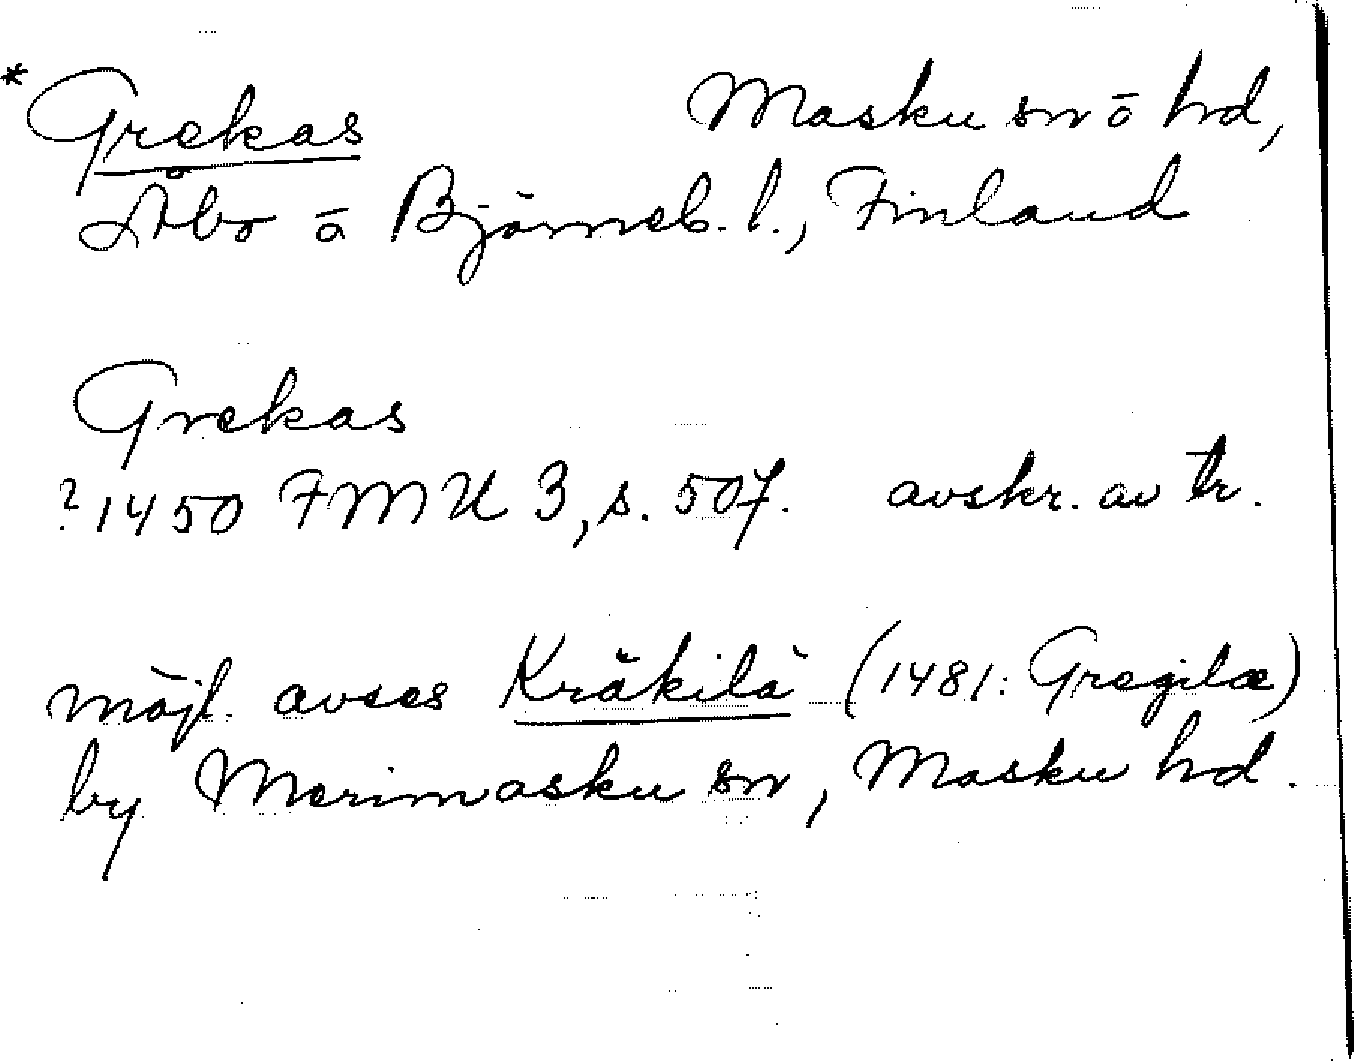 *Grekas Masku sn o hd,
Åbo o Björneb. l., Finland
Grekas
?1450 FMU 3, s. 507. avskr. av tr.
möjl. avses Kräkilä (1481: Gregilæ)
by Merimasku sn, Masku hd.